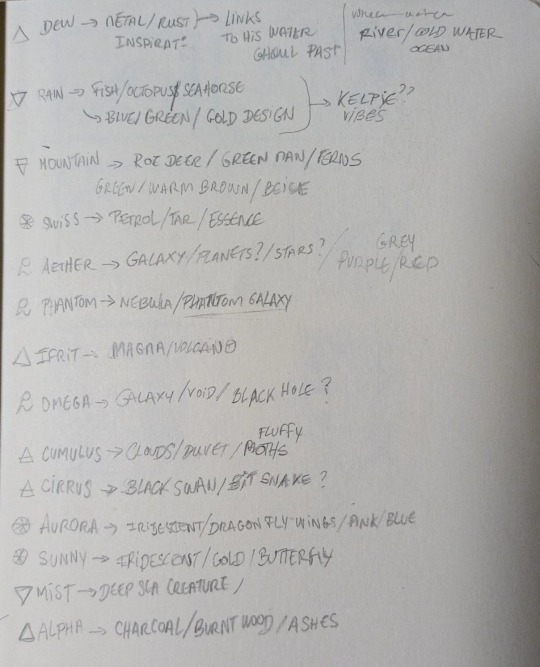 DEW → METAL/RUST → LINKS
INSPIRAT: TO HIS WATER
GHOUL PAST
When water
RIVER/COLD WATER
OCEAN
RAIN → FISH/OCTOPUS/SEAHORSE
↳ BLUE/GREEN/GOLD DESIGN → KELPIE??
VIBES
MOUNTAIN → ROE DEER/GREEN MAN/FERNS
GREEN/WARM BROWN/BEIGE
SWISS → PETROL/TAR/ESSENCE
AETHER → GALAXY/PLANETS?/STARS?/ GREY
PURPLE/RED
PHANTOM → NEBULA/PHANTOM GALAXY
IFRIT → MAGMA/VOLCANO
OMEGA → GALAXY/VOID/BLACK HOLE?
CUMULUS → CLOUDS/DUVET/FLUFFY MOTHS
CIRRUS → BLACK SWAN/ SNAKE?
AURORA → IRIDESCENT/DRAGONFLY WINGS/PINK/BLUE
SUNNY → IRIDESCENT/GOLD/BUTTERFLY
MIST → DEEP SEA CREATURE/
ALPHA → CHARCOAL/BURNT WOOD/ASHES